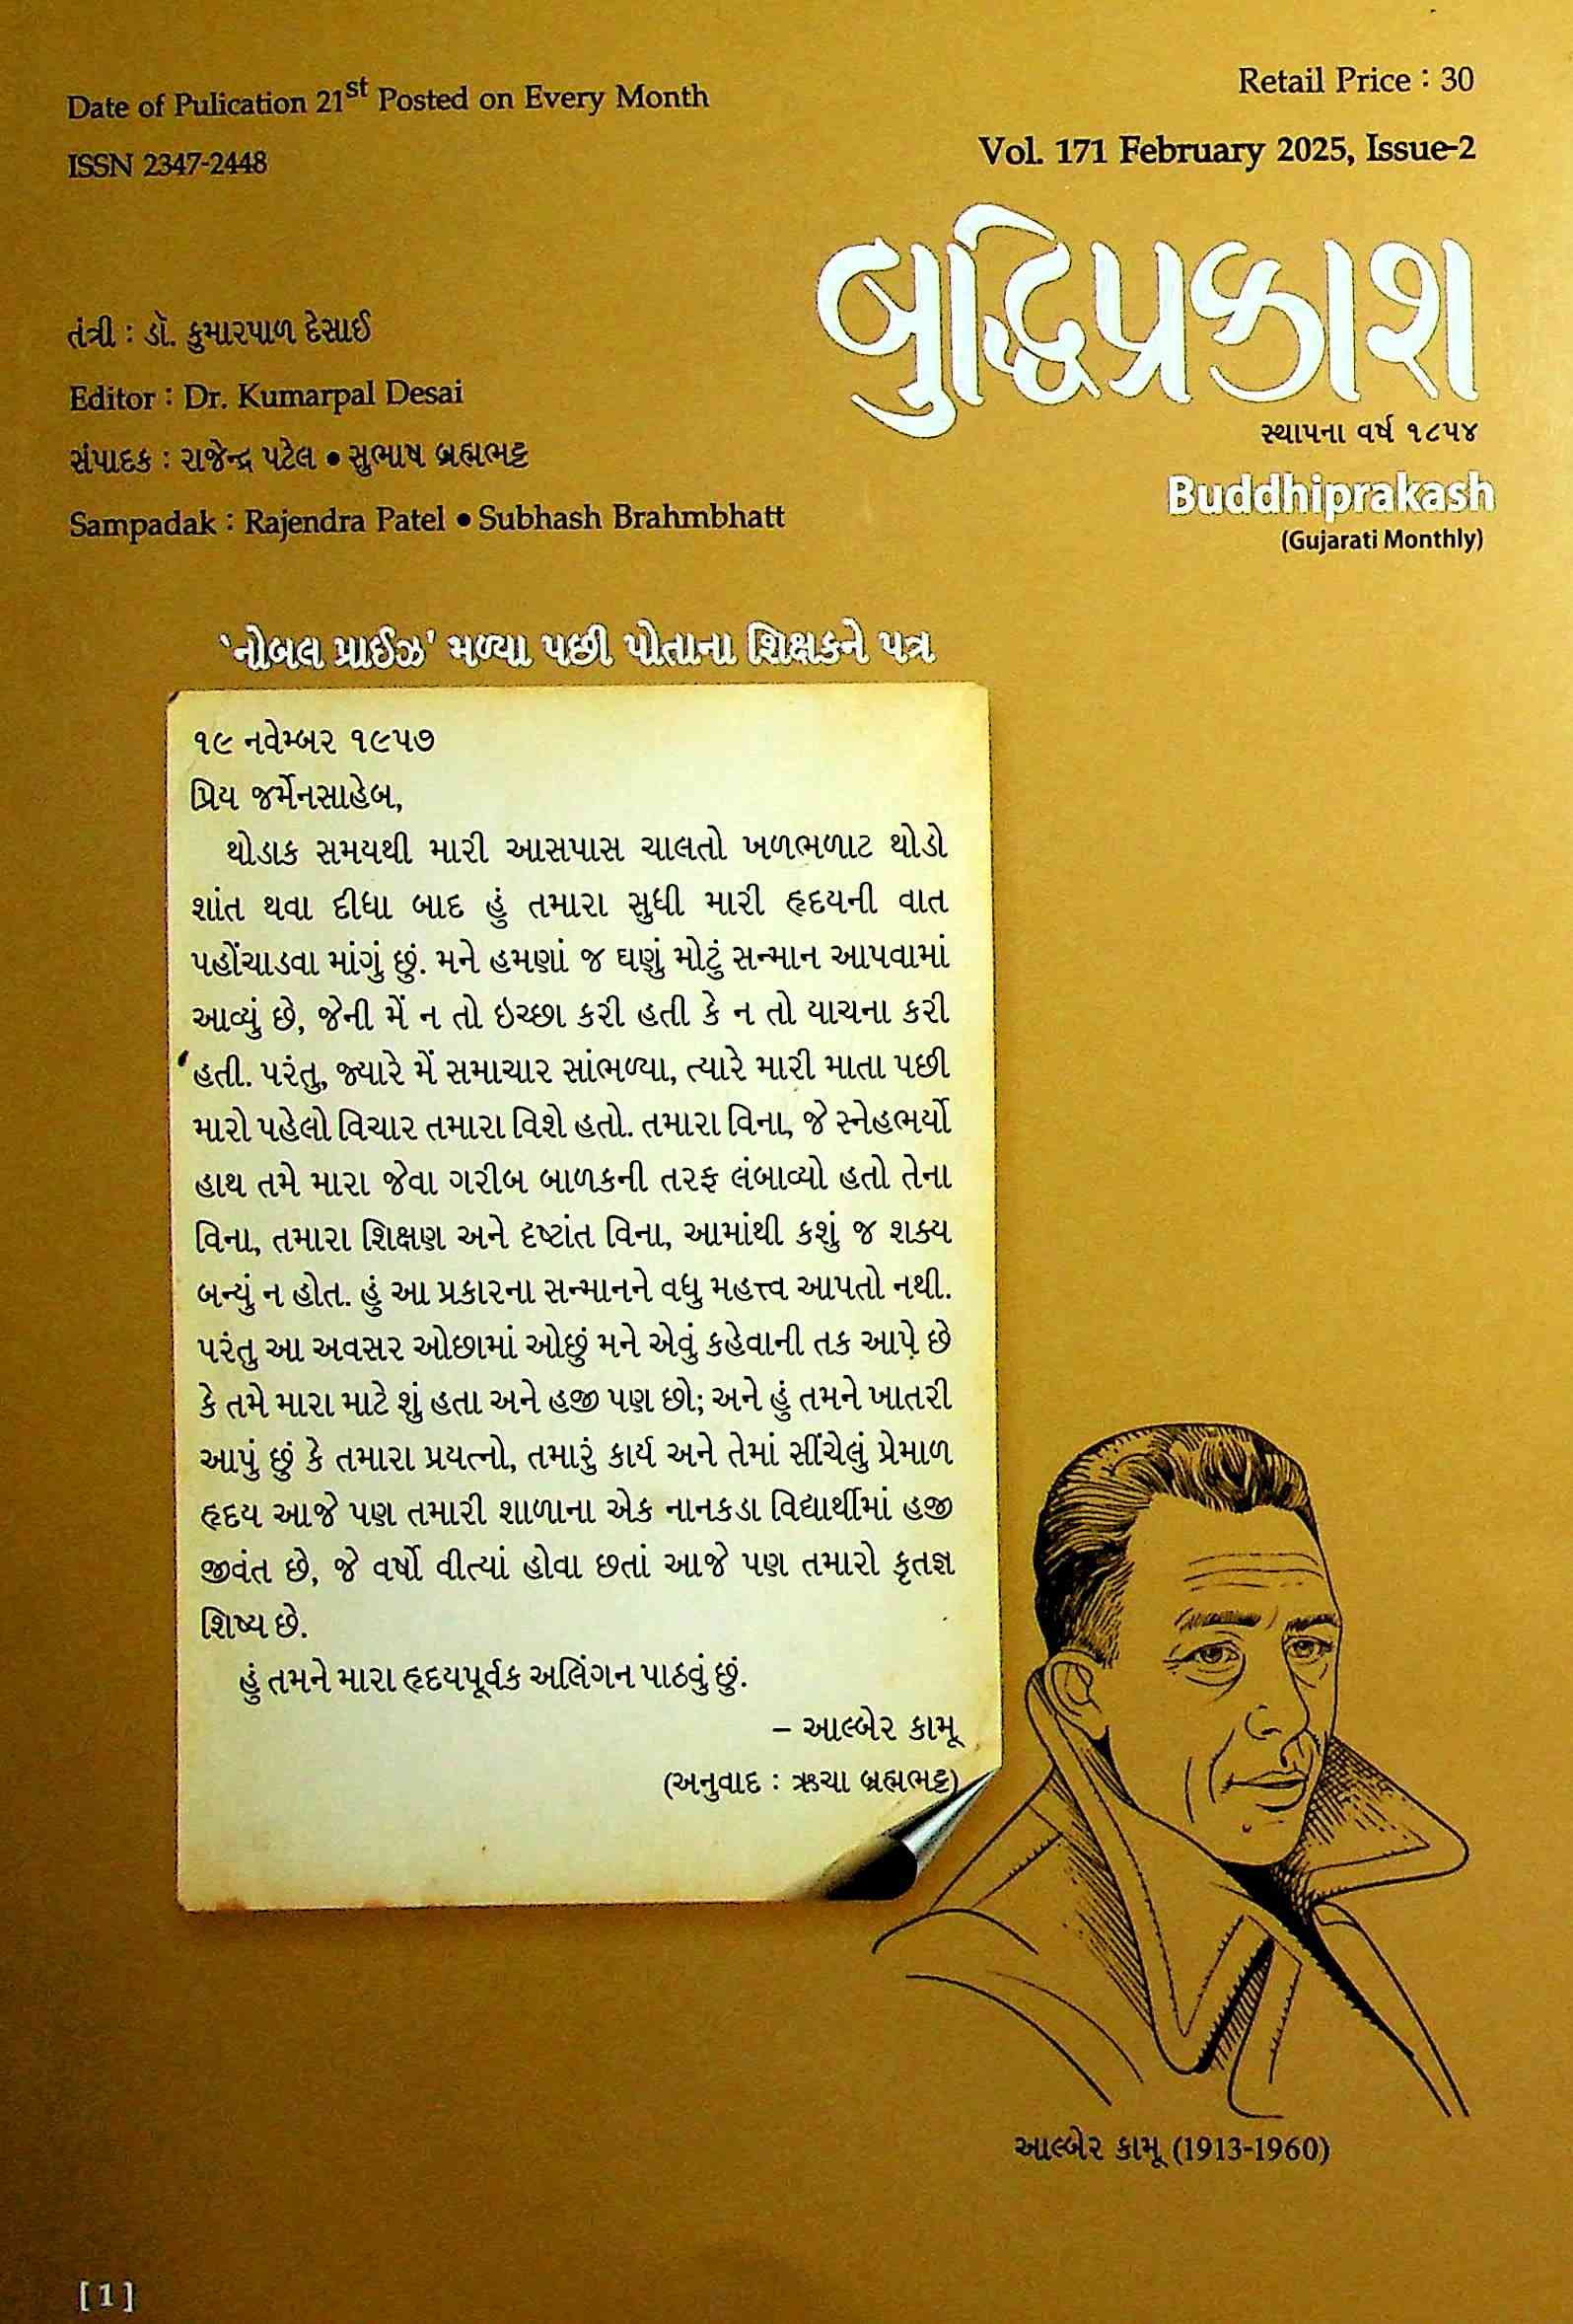 Date of Pulication 21st Posted on Every Month
ISSN 2347-2448
Retail Price : 30
Vol. 171 February 2025, Issue-2
બુદ્ધિપ્રકાશ
સ્થાપના વર્ષ ૧૮૫૪
Buddhiprakash
(Gujarati Monthly)
તંત્રી : ડૉ. કુમારપાળ દેસાઈ
Editor : Dr. Kumarpal Desai
સંપાદક : રાજેન્દ્ર પટેલ • સુભાષ બ્રહ્મભટ્ટ
Sampadak : Rajendra Patel • Subhash Brahmbhatt
'નોબલ પ્રાઈઝ' મળ્યા પછી પોતાના શિક્ષકને પત્ર
૧૯ નવેમ્બર ૧૯૫૭
પ્રિય જર્મેનસાહેબ,
થોડાક સમયથી મારી આસપાસ ચાલતો ખળભળાટ થોડો
શાંત થવા દીધા બાદ હું તમારા સુધી મારી હૃદયની વાત
પહોંચાડવા માંગું છું. મને હમણાં જ ઘણું મોટું સન્માન આપવામાં
આવ્યું છે, જેની મેં ન તો ઇચ્છા કરી હતી કે ન તો યાચના કરી
હતી. પરંતુ, જ્યારે મેં સમાચાર સાંભળ્યા, ત્યારે મારી માતા પછી
મારો પહેલો વિચાર તમારા વિશે હતો. તમારા વિના, જે સ્નેહભર્યો
હાથ તમે મારા જેવા ગરીબ બાળકની તરફ લંબાવ્યો હતો તેના
વિના, તમારા શિક્ષણ અને દૃષ્ટાંત વિના, આમાંથી કશું જ શક્ય
બન્યું ન હોત. હું આ પ્રકારના સન્માનને વધુ મહત્ત્વ આપતો નથી.
પરંતુ આ અવસર ઓછામાં ઓછું મને એવું કહેવાની તક આપે છે
કે તમે મારા માટે શું હતા અને હજી પણ છો; અને હું તમને ખાતરી
આપું છું કે તમારા પ્રયત્નો, તમારું કાર્ય અને તેમાં સીંચેલું પ્રેમાળ
હૃદય આજે પણ તમારી શાળાના એક નાનકડા વિદ્યાર્થીમાં હજી
જીવંત છે, જે વર્ષો વીત્યાં હોવા છતાં આજે પણ તમારો કૃતજ્ઞ
શિષ્ય છે.
હું તમને મારા હૃદયપૂર્વક અલિંગન પાઠવું છું.
– આલ્બેર કામૂ
(અનુવાદ : ઋચા બ્રહ્મભટ્ટ)
આલ્બેર કામૂ (1913-1960)
[1]